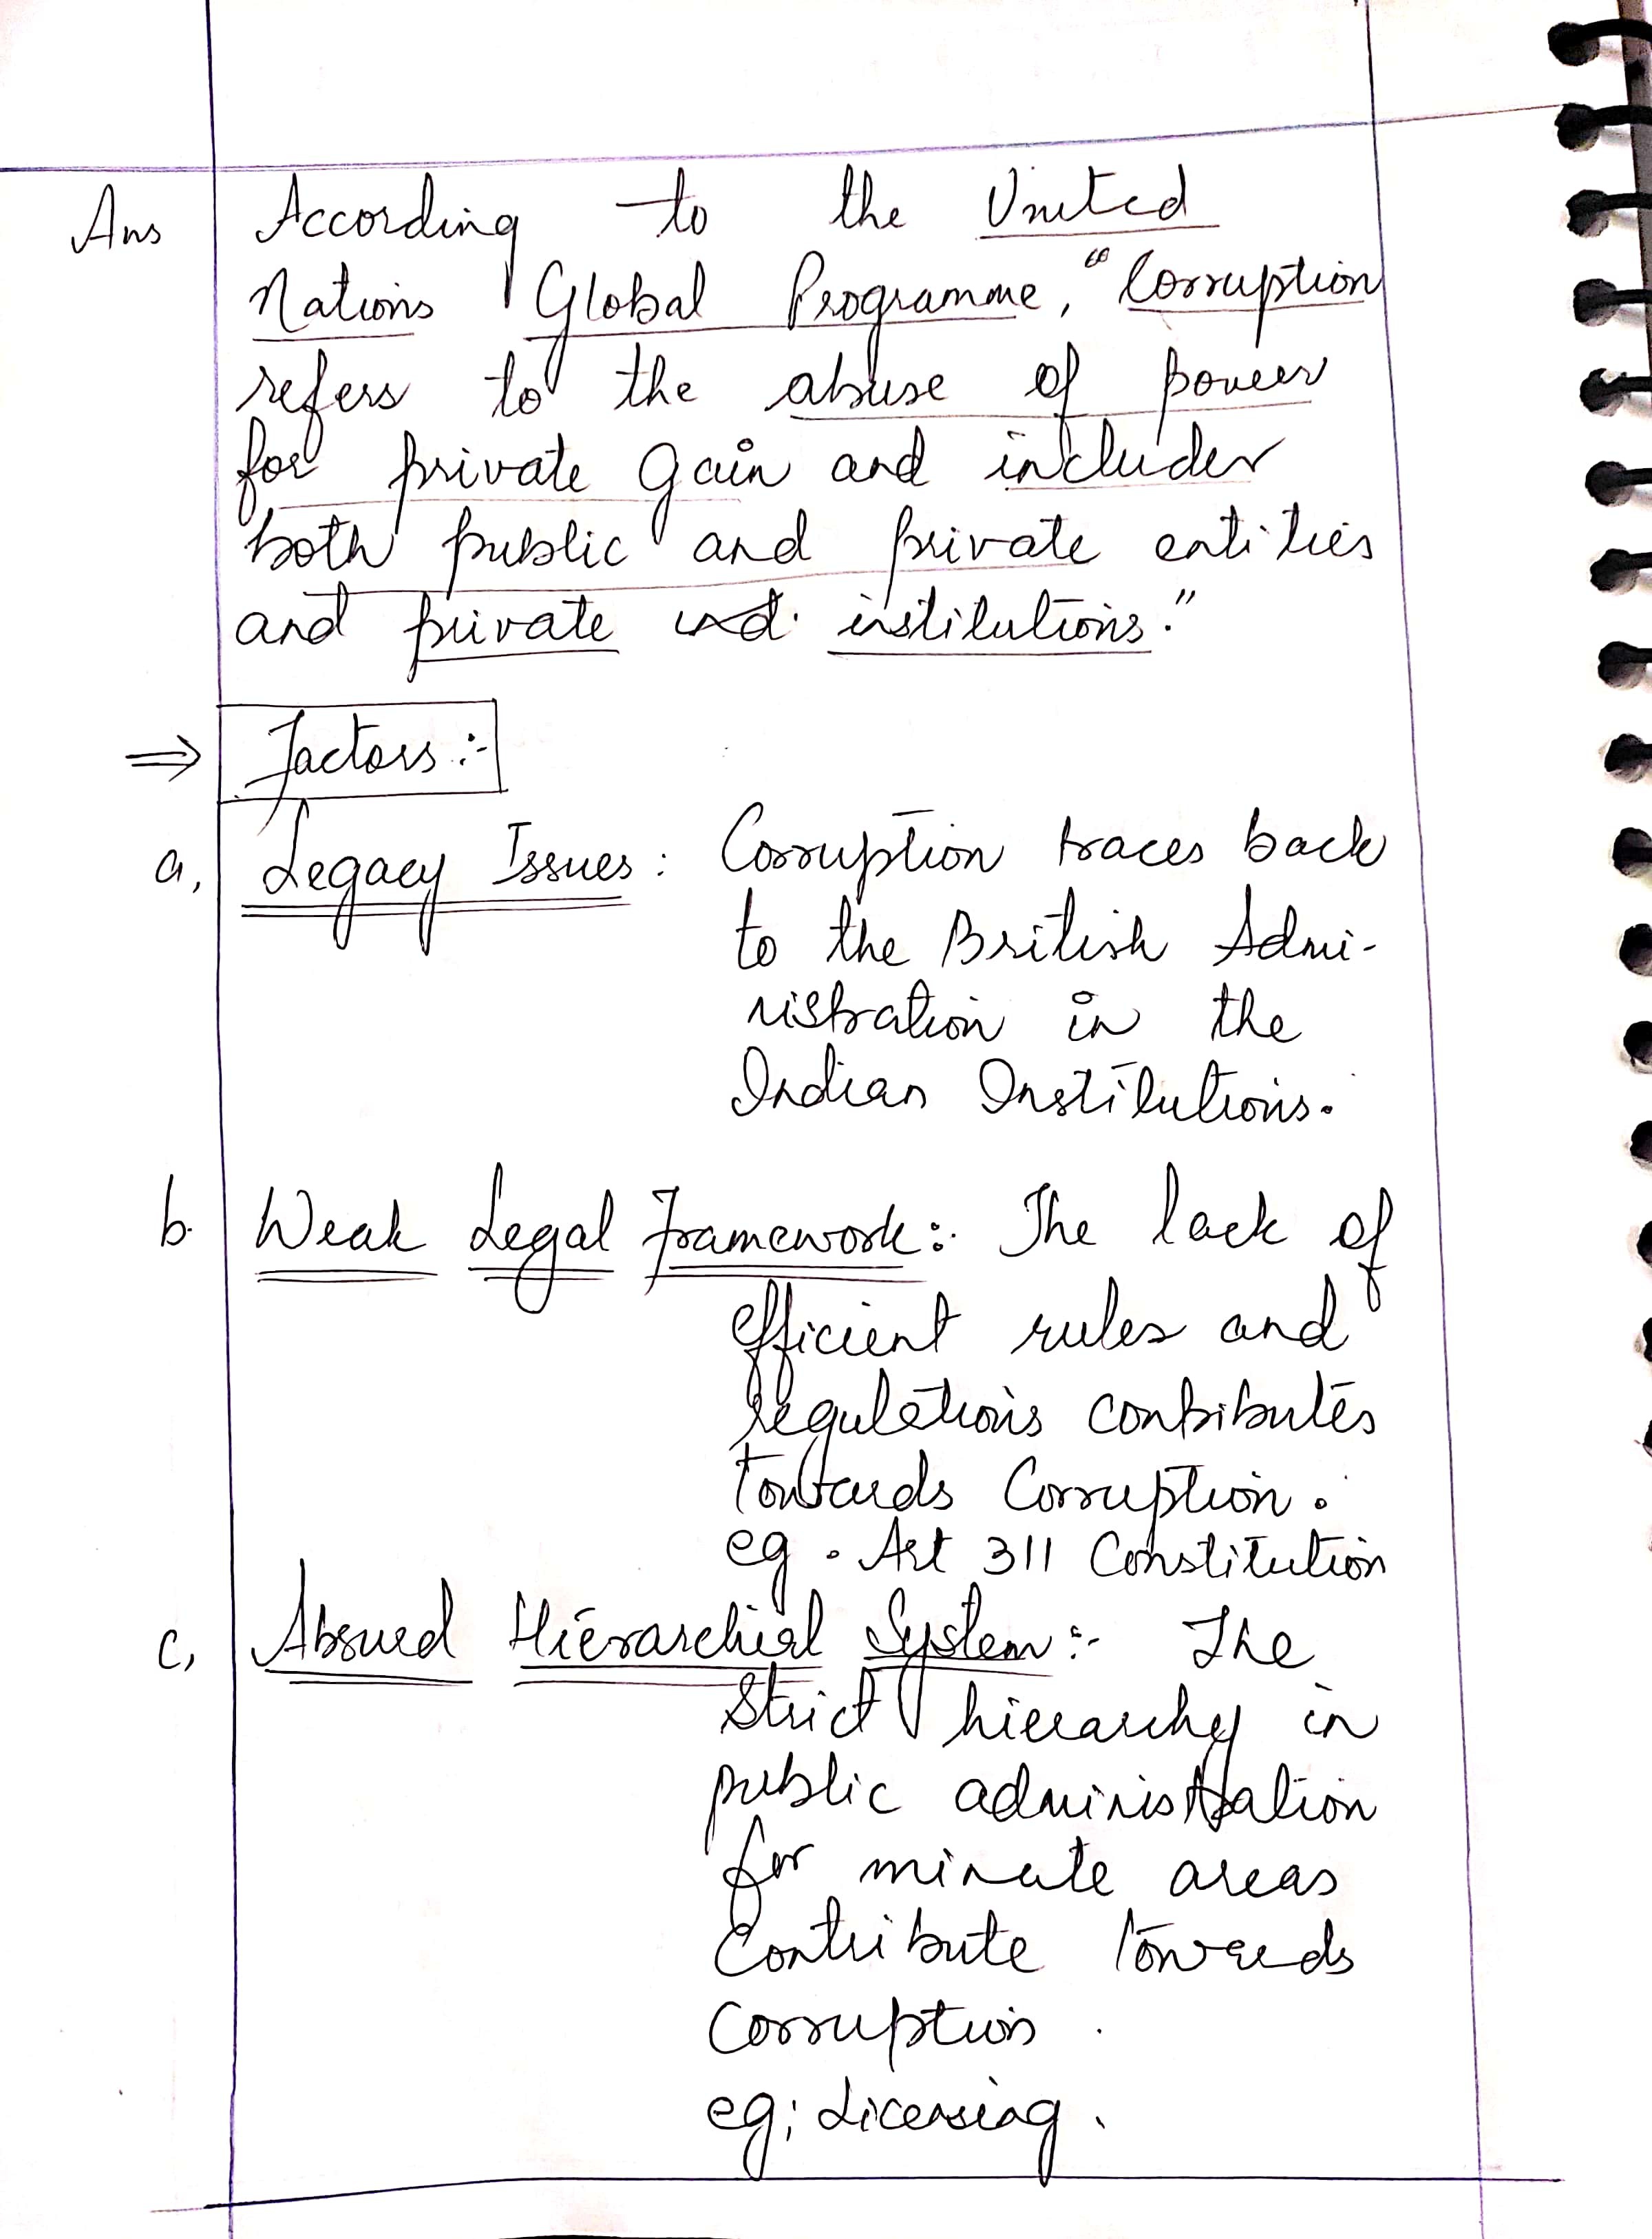 Ans According to the United
Nations Global Programme, "Corruption
refers to the abuse of power
for private gain and includes
both public and private entities
and private institutions."
⇒ Factors :-
a, Legacy Issues : Corruption traces back
to the British Admi-
nistration in the
Indian Institutions.
b. Weak Legal Framework :- The lack of
efficient rules and
regulations contributes
towards Corruption.
eg. Art 311 Constitution
c, Absurd Hierarchial System :- The
Strict hierarchy in
public administration
for minute areas
Contribute towards
Corruption.
eg; Licensing.